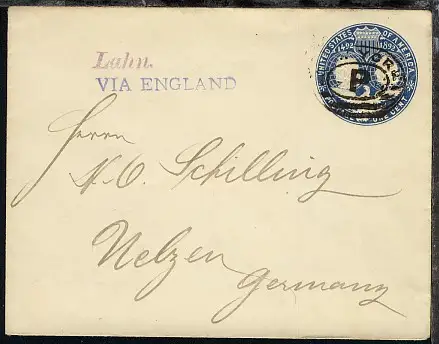 Lahn.
VIA ENGLAND
UNITED STATES OF AMERICA
1492 1892
ONE CENT
P
Herrn
H. C. Schilling
Uelzen
Germany